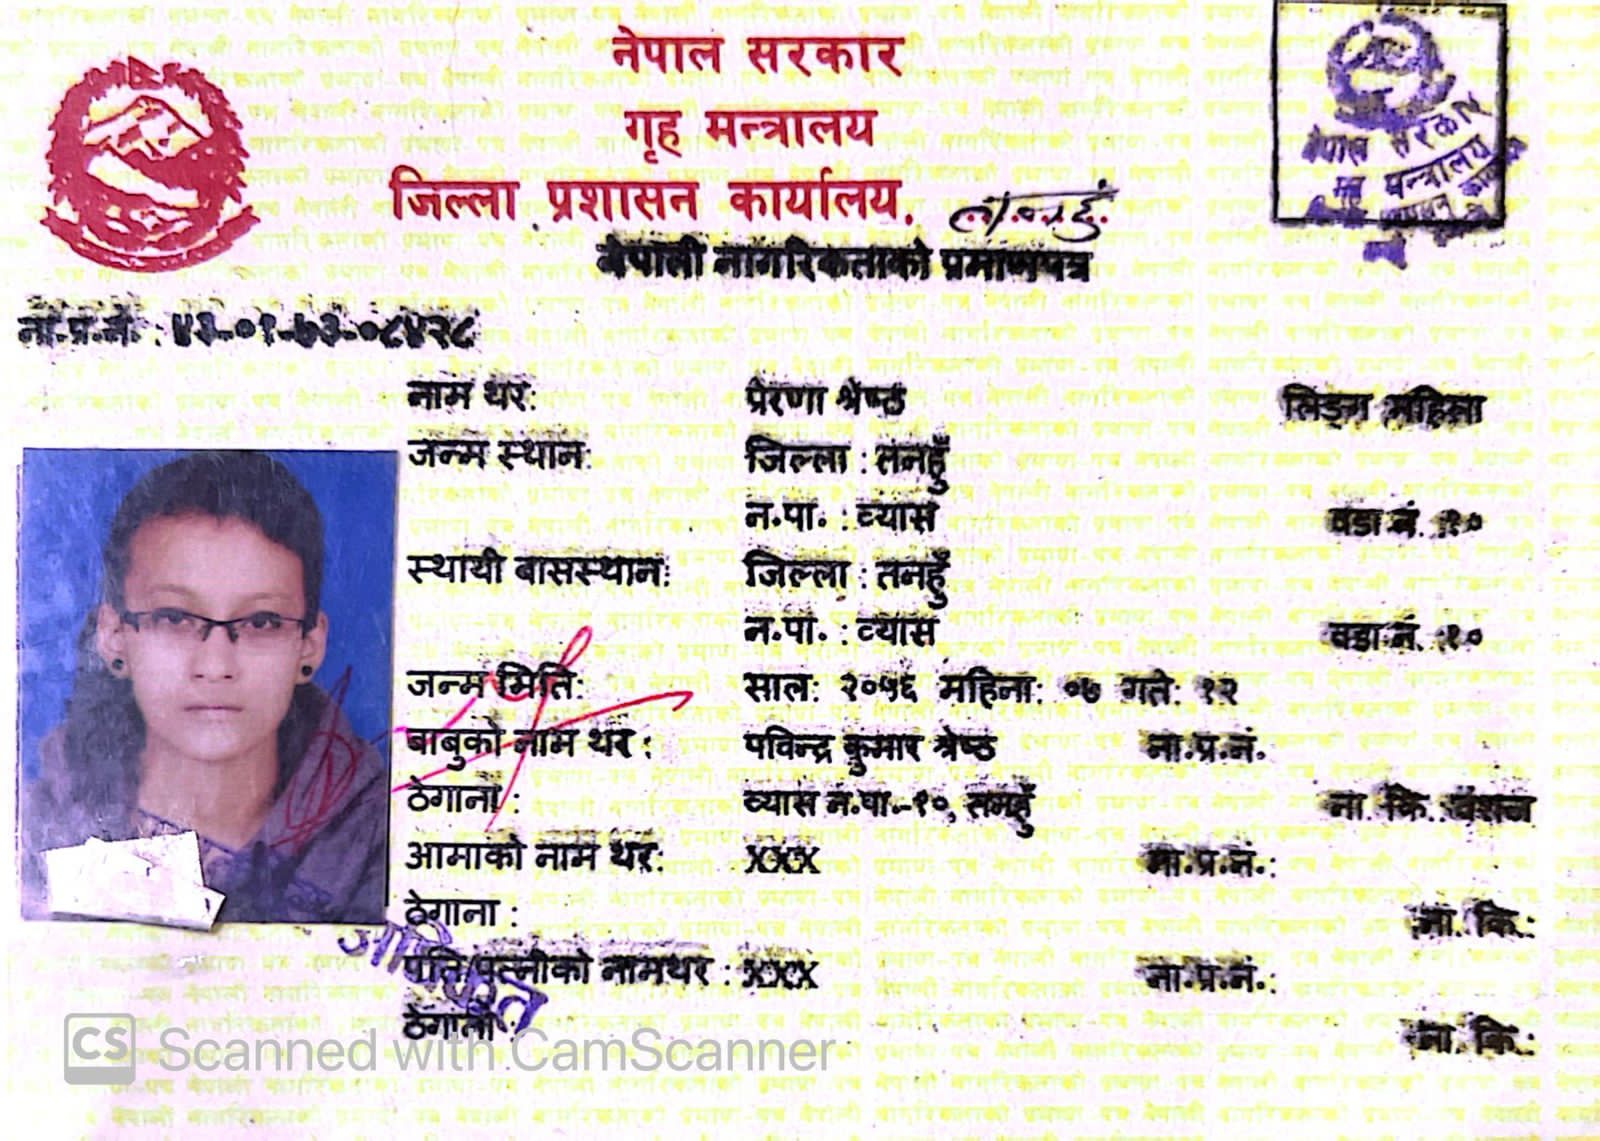 नेपाल सरकार
गृह मन्त्रालय
जिल्ला प्रशासन कार्यालय, तनहुँ
नेपाली नागरिकताको प्रमाणपत्र
नेपाल सरकार
गृह मन्त्रालय
ना.प्र.नं. : ४३-०१-७३-०८४२८
नाम थर: प्रेरणा श्रेष्ठ लिङ्ग महिला
जन्म स्थान: जिल्ला : तनहुँ
न.पा. : व्यास वडा नं. :१०
स्थायी बासस्थान: जिल्ला : तनहुँ
न.पा. : व्यास वडा नं. :१०
जन्म मिति: साल: २०५६ महिना: ०७ गते: १२
बाबुको नाम थर : पविन्द्र कुमार श्रेष्ठ ना.प्र.नं.
ठेगाना : व्यास न.पा.-१०, तनहुँ ना. कि.: वंशज
आमाको नाम थर: XXX ना.प्र.नं.:
ठेगाना : ना. कि.:
पति/पत्नीको नामथर : XXX ना.प्र.नं.:
ठेगाना : ना. कि.:
CS Scanned with CamScanner